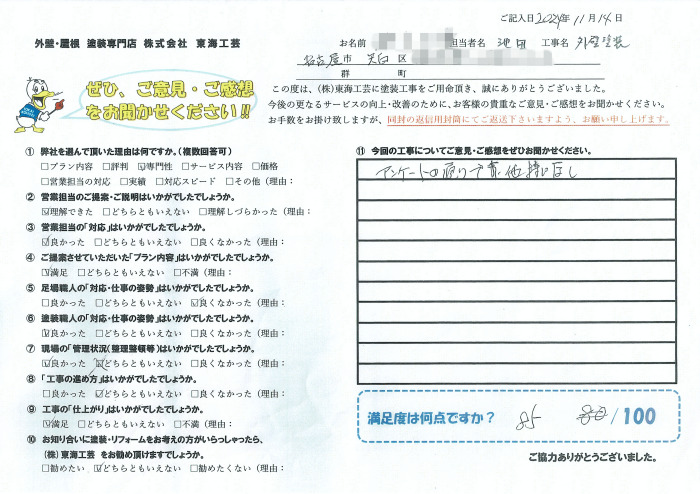 ご記入日2024年11月14日
外壁・屋根 塗装専門店 株式会社 東海工芸
お名前 担当者名 池田 工事名 外壁塗装
名古屋市 天白区
郡 町
ぜひ、ご意見・ご感想
をお聞かせください!!
この度は、(株)東海工芸に塗装工事をご用命頂き、誠にありがとうございました。
今後の更なるサービスの向上・改善のために、お客様の貴重なご意見・ご感想をお聞かせください。
お手数をお掛け致しますが、同封の返信用封筒にてご返送下さいますよう、お願い申し上げます。
① 弊社を選んで頂いた理由は何ですか。(複数回答可)
□プラン内容 □評判 ☑専門性 □サービス内容 □価格
□営業担当の対応 □実績 □対応スピード □その他(理由：
② 営業担当のご提案・ご説明はいかがでしたでしょうか。
☑理解できた □どちらともいえない □理解しづらかった(理由：
③ 営業担当の「対応」はいかがでしたでしょうか。
☑良かった □どちらともいえない □良くなかった(理由：
④ ご提案させていただいた「プラン内容」はいかがでしたでしょうか。
☑満足 □どちらともいえない □不満(理由：
⑤ 足場職人の「対応・仕事の姿勢」はいかがでしたでしょうか。
□良かった □どちらともいえない ☑良くなかった(理由：
⑥ 塗装職人の「対応・仕事の姿勢」はいかがでしたでしょうか。
☑良かった □どちらともいえない □良くなかった(理由：
⑦ 現場の「管理状況(整理整頓等)」はいかがでしたでしょうか。
☑良かった ☑どちらともいえない □良くなかった(理由：
⑧ 「工事の進め方」はいかがでしたでしょうか。
□良かった ☑どちらともいえない □良くなかった(理由：
⑨ 工事の「仕上がり」はいかがでしたでしょうか。
☑満足 □どちらともいえない □不満(理由：
⑩ お知り合いに塗装・リフォームをお考えの方がいらっしゃったら、
(株)東海工芸 をお勧め頂けますでしょうか。
□勧めたい ☑どちらともいえない □勧めたくない(理由：
⑪ 今回の工事についてご意見・ご感想をぜひお聞かせください。
アンケートの通りで
満足度は何点ですか？ 85 /100
ご協力ありがとうございました。